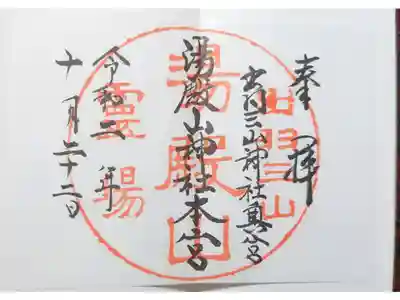 奉拝
出羽三山神社奥宮
湯殿山神社本宮
令和二年
十月二十二日
出羽三山
湯殿山
霊場